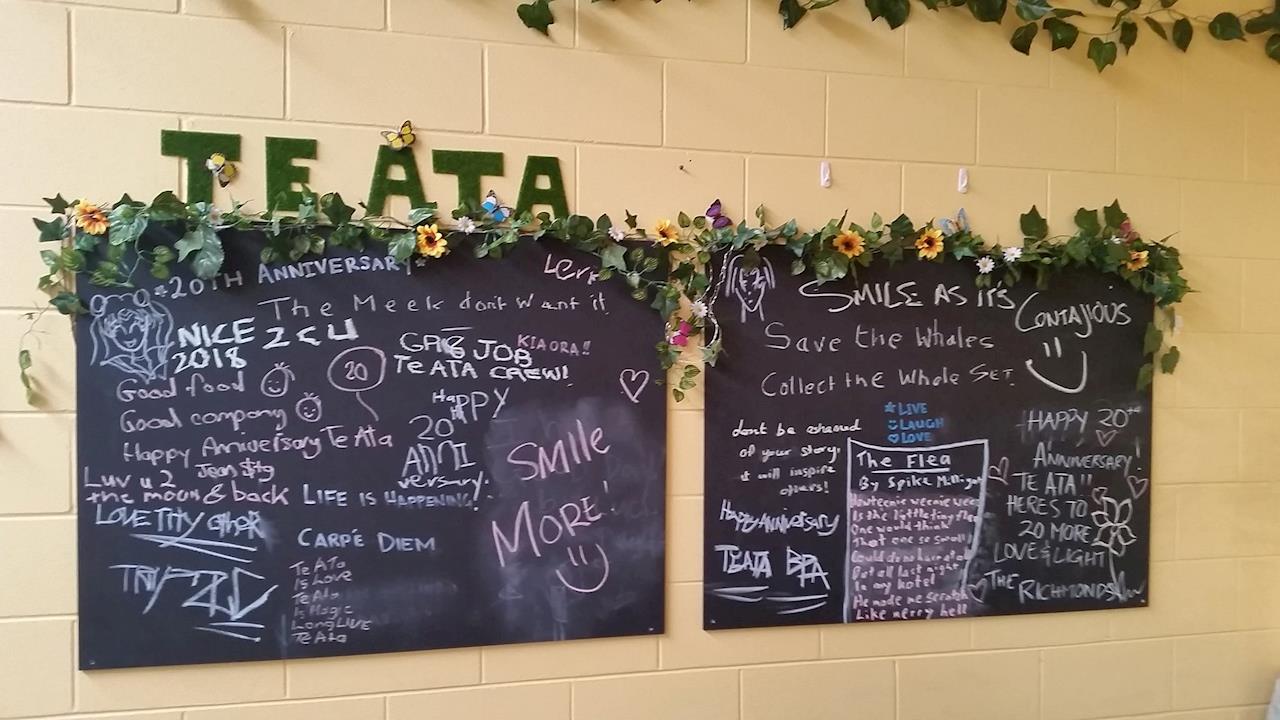 TE ATA
*20TH ANNIVERSARY*
The Meek dont want it
NICE
2018
GR8 JOB
TE ATA CREW!
KIA ORA!!
20
Good food
Good company
Happy Anniversary Te Ata
Luv u 2
the moon & back
HAPPY
20th
ANNI
versary.
LIFE IS HAPPENING!
CARPÉ DIEM
Te ATa
Is Love
Te Ata
Is Magic
Long LIVE
Te Ata
SMILE
MORE!
SMILE AS IT'S
CONTAJIOUS
Save the Whales
Collect the Whole Set.
LIVE
LAUGH
LOVE
dont be ashamed
of your story,
it will inspire
others!
Happy Anniversary
TE ATA
The Flea
By Spike Milligan
Is the little tiny flea
One would think
That one so small
Could do no harm at all
But all last night
In my hotel
He made me scratch
Like merry hell
HAPPY 20TH
ANNIVERSARY!
TE ATA!!
HERES TO
20 MORE
LOVE & LIGHT
THE RICHMONDS